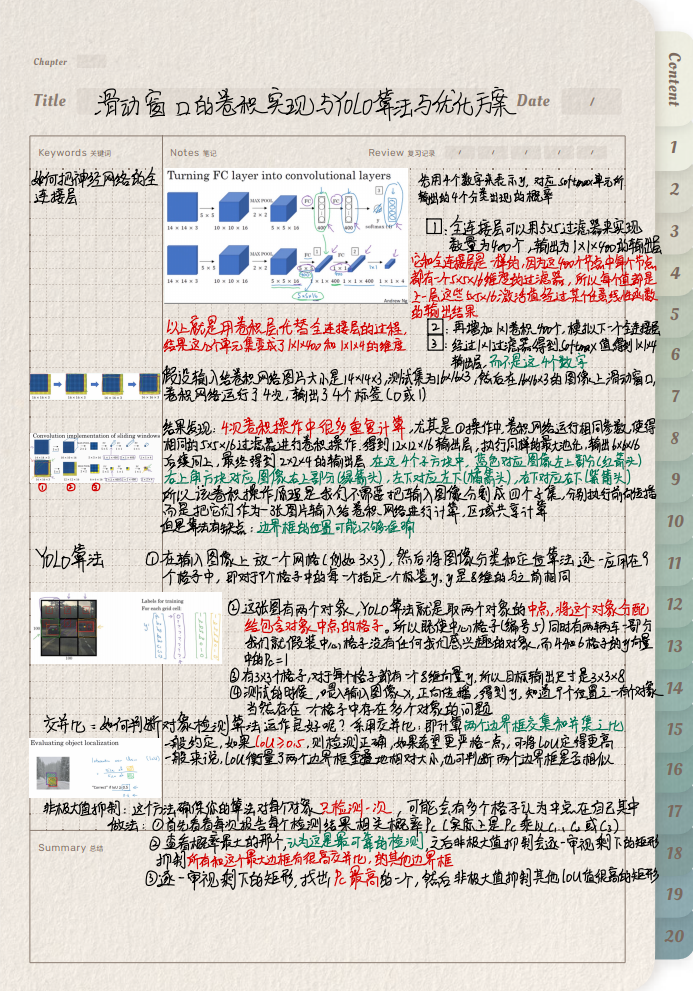 Chapter
Title 滑动窗口的卷积实现与YOLO算法与优化方案 Date /
Keywords 关键词
Notes 笔记
Review 复习记录 / / / / /
如何把神经网络的全
连接层
Turning FC layer into convolutional layers
MAX POOL
FC
FC
5 × 5
2 × 2
14 × 14 × 3
10 × 10 × 16
5 × 5 × 16
400
400
softmax (4)
MAX POOL
FC
FC
5 × 5
2 × 2
14 × 14 × 3
10 × 10 × 16
5 × 5 × 16
1 × 1 × 400
1 × 1 × 400
1 × 1 × 4
5×5×16
Andrew Ng
先用4个数字来表示y,对应softmax单元所
输出的4个分类出现的概率
1:全连接层可以用5x5过滤器来实现
数量为400个,输出为1x1x400的输出层
它和全连接层是一样的,因为这400个节点中每个节点
都有一个5x5x16维度的过滤器,所以每个值都是
上一层这些5x5x16激活值经过某个任意线性函数
的输出结果
以上就是用卷积层代替全连接层的过程,
结果这几个单元集变成了1x1x400和1x1x4的维度
2:再增加1x1卷积400个,模拟下一个全连接层
3:经过1x1过滤器得到softmax值得到1x1x4
输出层,而不是这4个数字
假设输入给卷积网络图片大小是14x14x3,测试集为16x16x3,然后在16x16x3的图像上滑动窗口,
卷积网络运行了4次,输出了4个标签(0或1)
Convolution implementation of sliding windows
① ② ③
结果发现:4次卷积操作中很多重复计算,尤其是①操作中,卷积网络运行相同参数,使得
相同的5x5x16过滤器进行卷积操作,得到12x12x16输出层,执行同样的最大池化,输出6x6x16
后续同上,最终得到2x2x4的输出层 在这4个子方块中,蓝色对应图像左上部分(红箭头)
右上角方块对应图像右上部分(绿箭头),左下对应左下(橘箭头),右下对应右下(紫箭头)
所以该卷积操作原理是我们不需要把输入图像分割成四个子集,分别执行前向传播
而是把它们作为一张图片输入给卷积网络进行计算,区域共享计算
但是算法有缺点:边界框的位置可能不够准确
YOLO算法
①在输入图像上放一个网格(例如3x3),然后将图像分类和定位算法逐一应用在9
个格子中,即对于9个格子中的每一个指定一个标签y,y是8维的与之前相同
Labels for training
For each grid cell:
②这张图有两个对象,YOLO算法就是取两个对象的中点,将这个对象分配
给包含对象中点的格子。所以既使中心格子(编号5)同时有两辆车一部分
我们就假装中心格子没有任何我们感兴趣的对象,而4和6格子的y向量
中的Pc=1
③有3x3个格子,对于每个格子都有一个8维向量y,所以目标输出尺寸是3x3x8
④测试的时候,喂入输入图像x,正向传播,得到y,知道9个位置上有个对象
当然存在一个格子中存在多个对象的问题
交并比:如何判断对象检测算法运作良好呢?采用交并比:即计算两个边界框交集和并集之比
一般约定,如果IoU≥0.5,则检测正确,如果希望更严格一点,可将IoU定得更高
一般来说,IoU衡量了两个边界框重叠地相对大小,也可判断两个边界框是否相似
Evaluating object localization
非极大值抑制:这个方法确保你的算法对每个对象只检测一次,可能会有多个格子认为中点在自己其中
做法:①首先看看每次报告每个检测结果相关概率Pc(实际上是Pc乘以C1、C2或C3)
②查看概率最大的那个,认为这是最可靠的检测,之后非极大值抑制会逐一审视剩下的矩形
抑制所有和这个最大边框有很高交并比,的其他边界框
③逐一审视剩下的矩形,找出Pc最高的一个,然后非极大值抑制其他IoU值很高的矩形
Summary 总结
Content
1
2
3
4
5
6
7
8
9
10
11
12
13
14
15
16
17
18
19
20